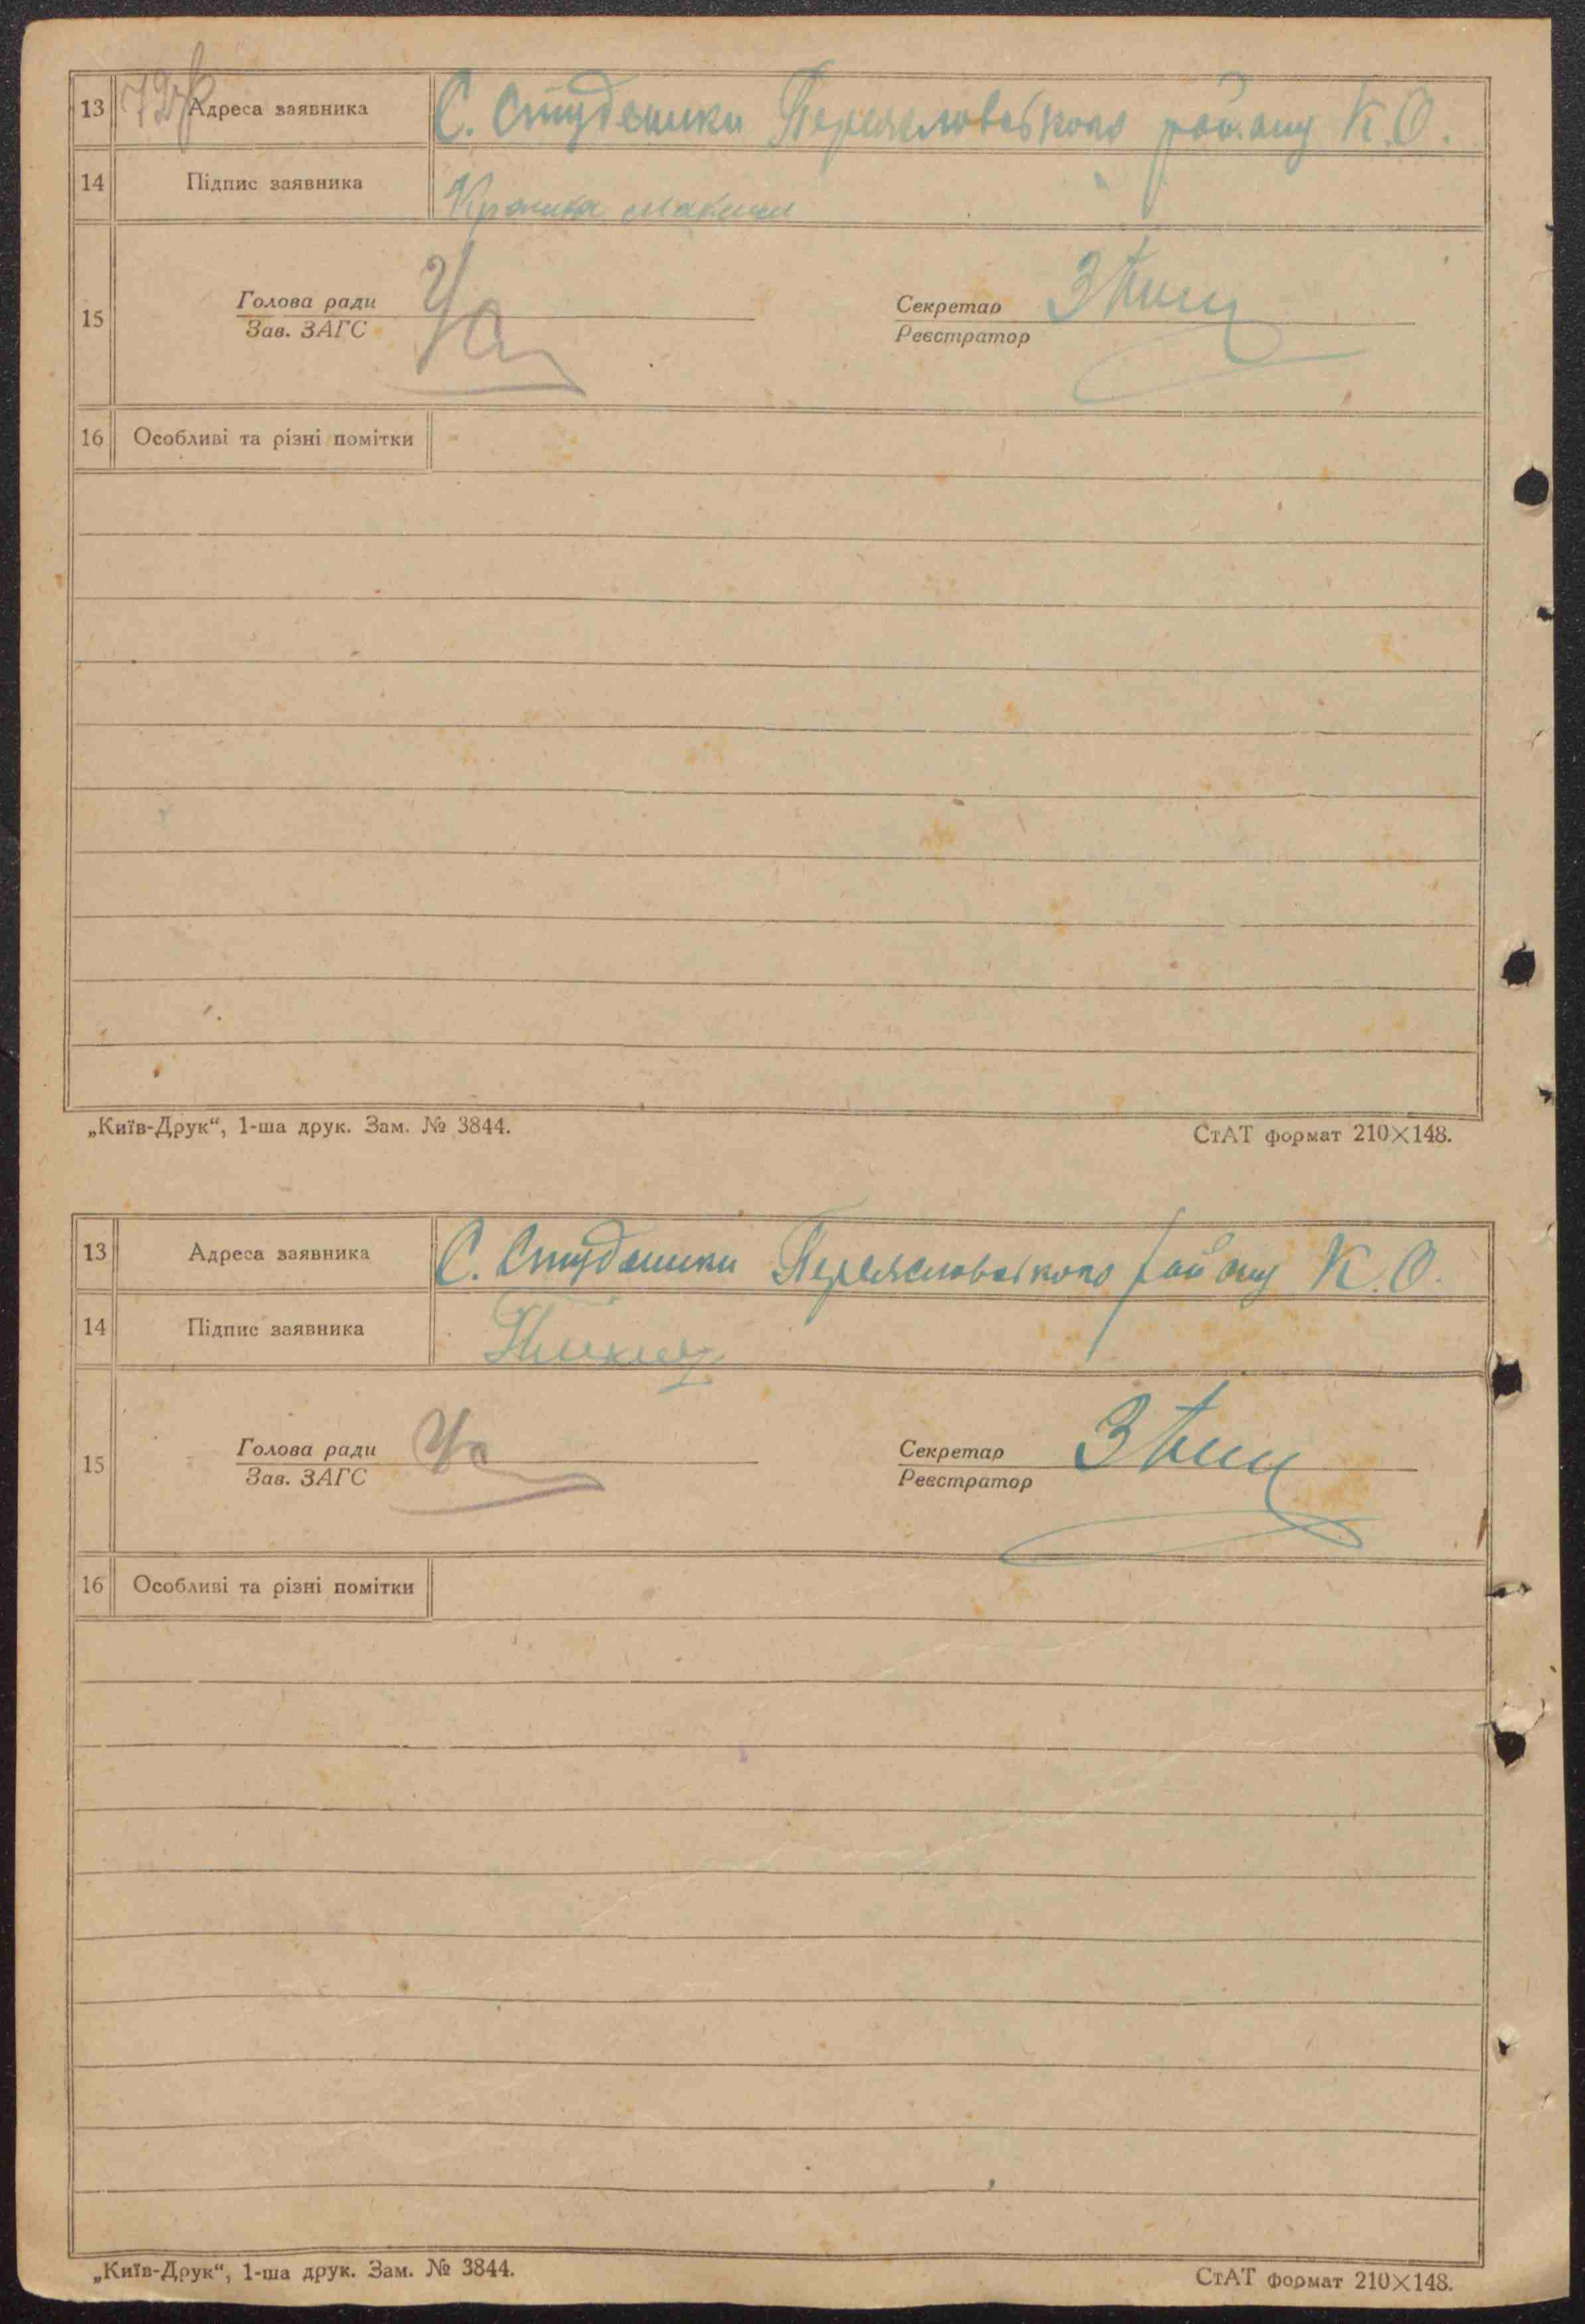 13 Адреса заявника С. Студеники Переяславського району К.О.
14 Підпис заявника
15 Голова ради Секретар
Зав. ЗАГС Реєстратор
16 Особливі та різні помітки
„Київ-Друк“, 1-ша друк. Зам. № 3844. СтАТ формат 210×148.
13 Адреса заявника С. Студеники Переяславського району К.О.
14 Підпис заявника
15 Голова ради Секретар
Зав. ЗАГС Реєстратор
16 Особливі та різні помітки
„Київ-Друк“, 1-ша друк. Зам. № 3844. СтАТ формат 210×148.